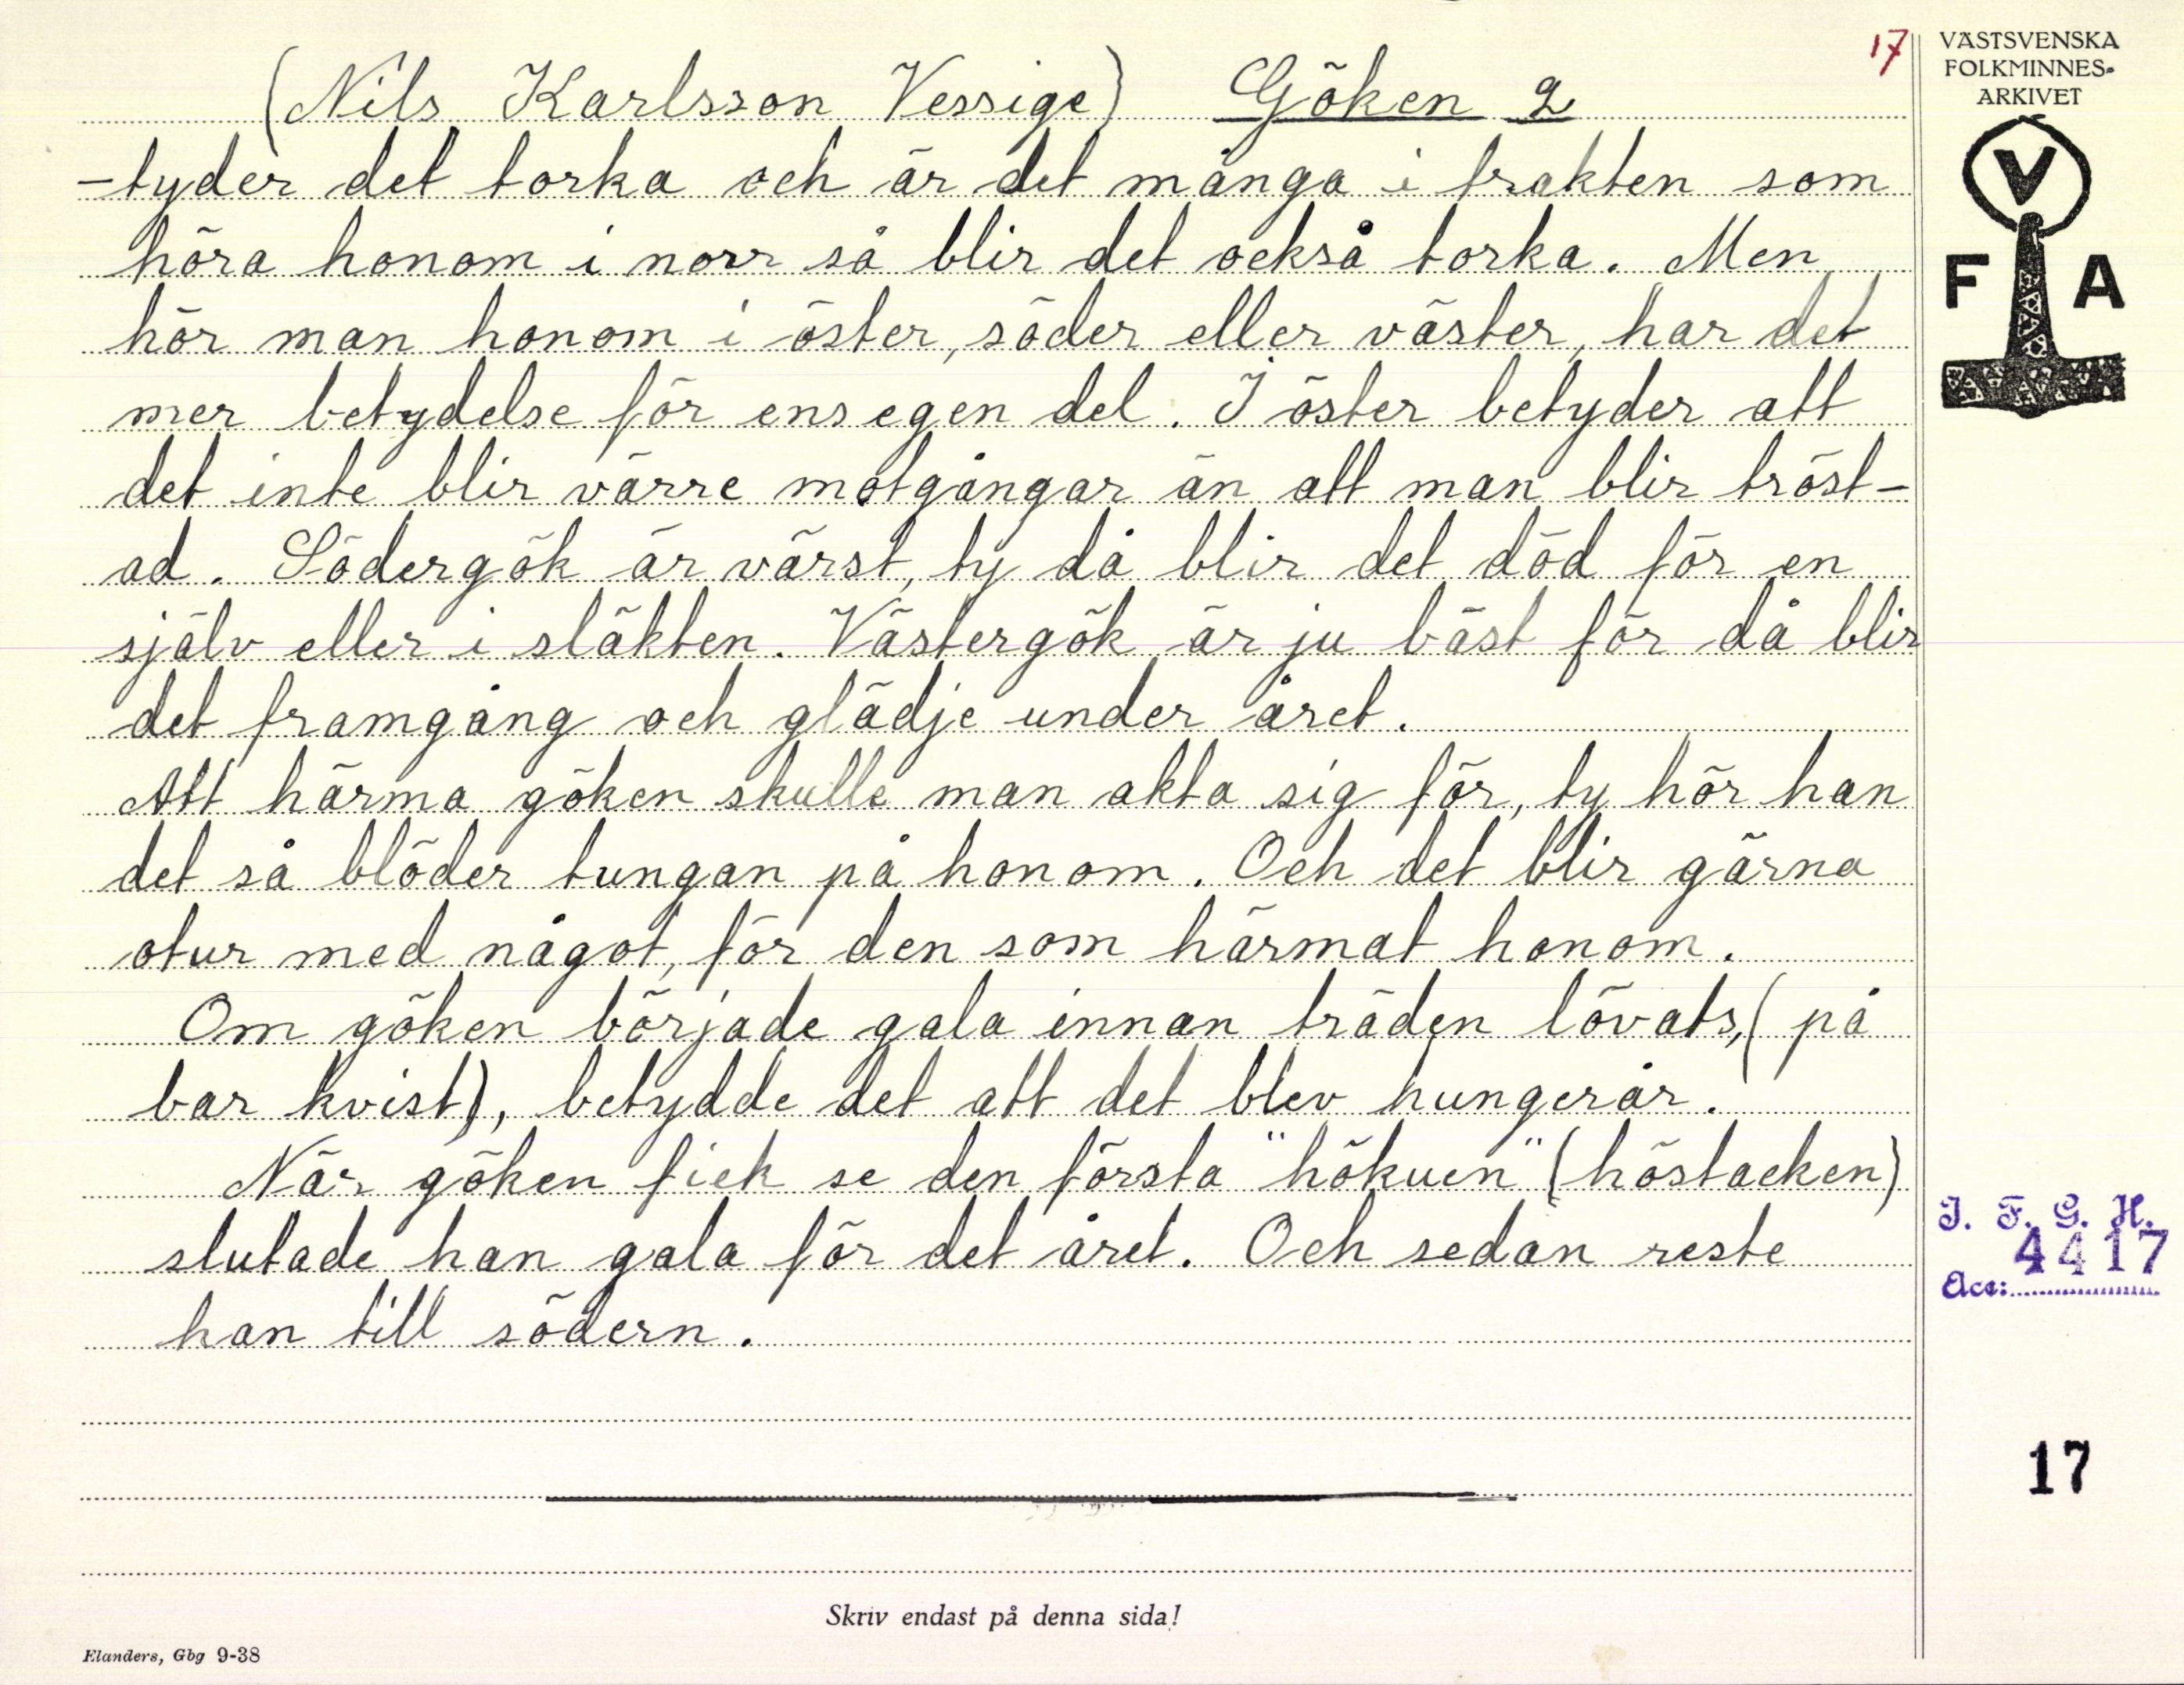 17
(Nils Karlsson Vessige) Göken 2
-tyder det torka och är det många i trakten som
höra honom i norr så blir det också torka. Men
hör man honom i öster, söder eller väster, har det
mer betydelse för ens egen del. I öster betyder att
det inte blir värre motgångar än att man blir tröst-
ad. Södergök är värst, ty då blir det död för en
själv eller i släkten. Västergök är ju bäst för då blir
det framgång och glädje under året.
Att härma göken skulle man akta sig för, ty hör han
det så blöder tungan på honom. Och det blir gärna
otur med något, för den som härmat honom.
Om göken började gala innan träden lövats, (på
bar kvist), betydde det att det blev hungerår.
När göken fick se den första "hökuen" (höstacken)
slutade han gala för det året. Och sedan reste
han till södern.
Skriv endast på denna sida!
Elanders, Gbg 9-38
VÄSTSVENSKA
FOLKMINNES-
ARKIVET
V
F A
I. F. G. H.
4417
Acc:
17